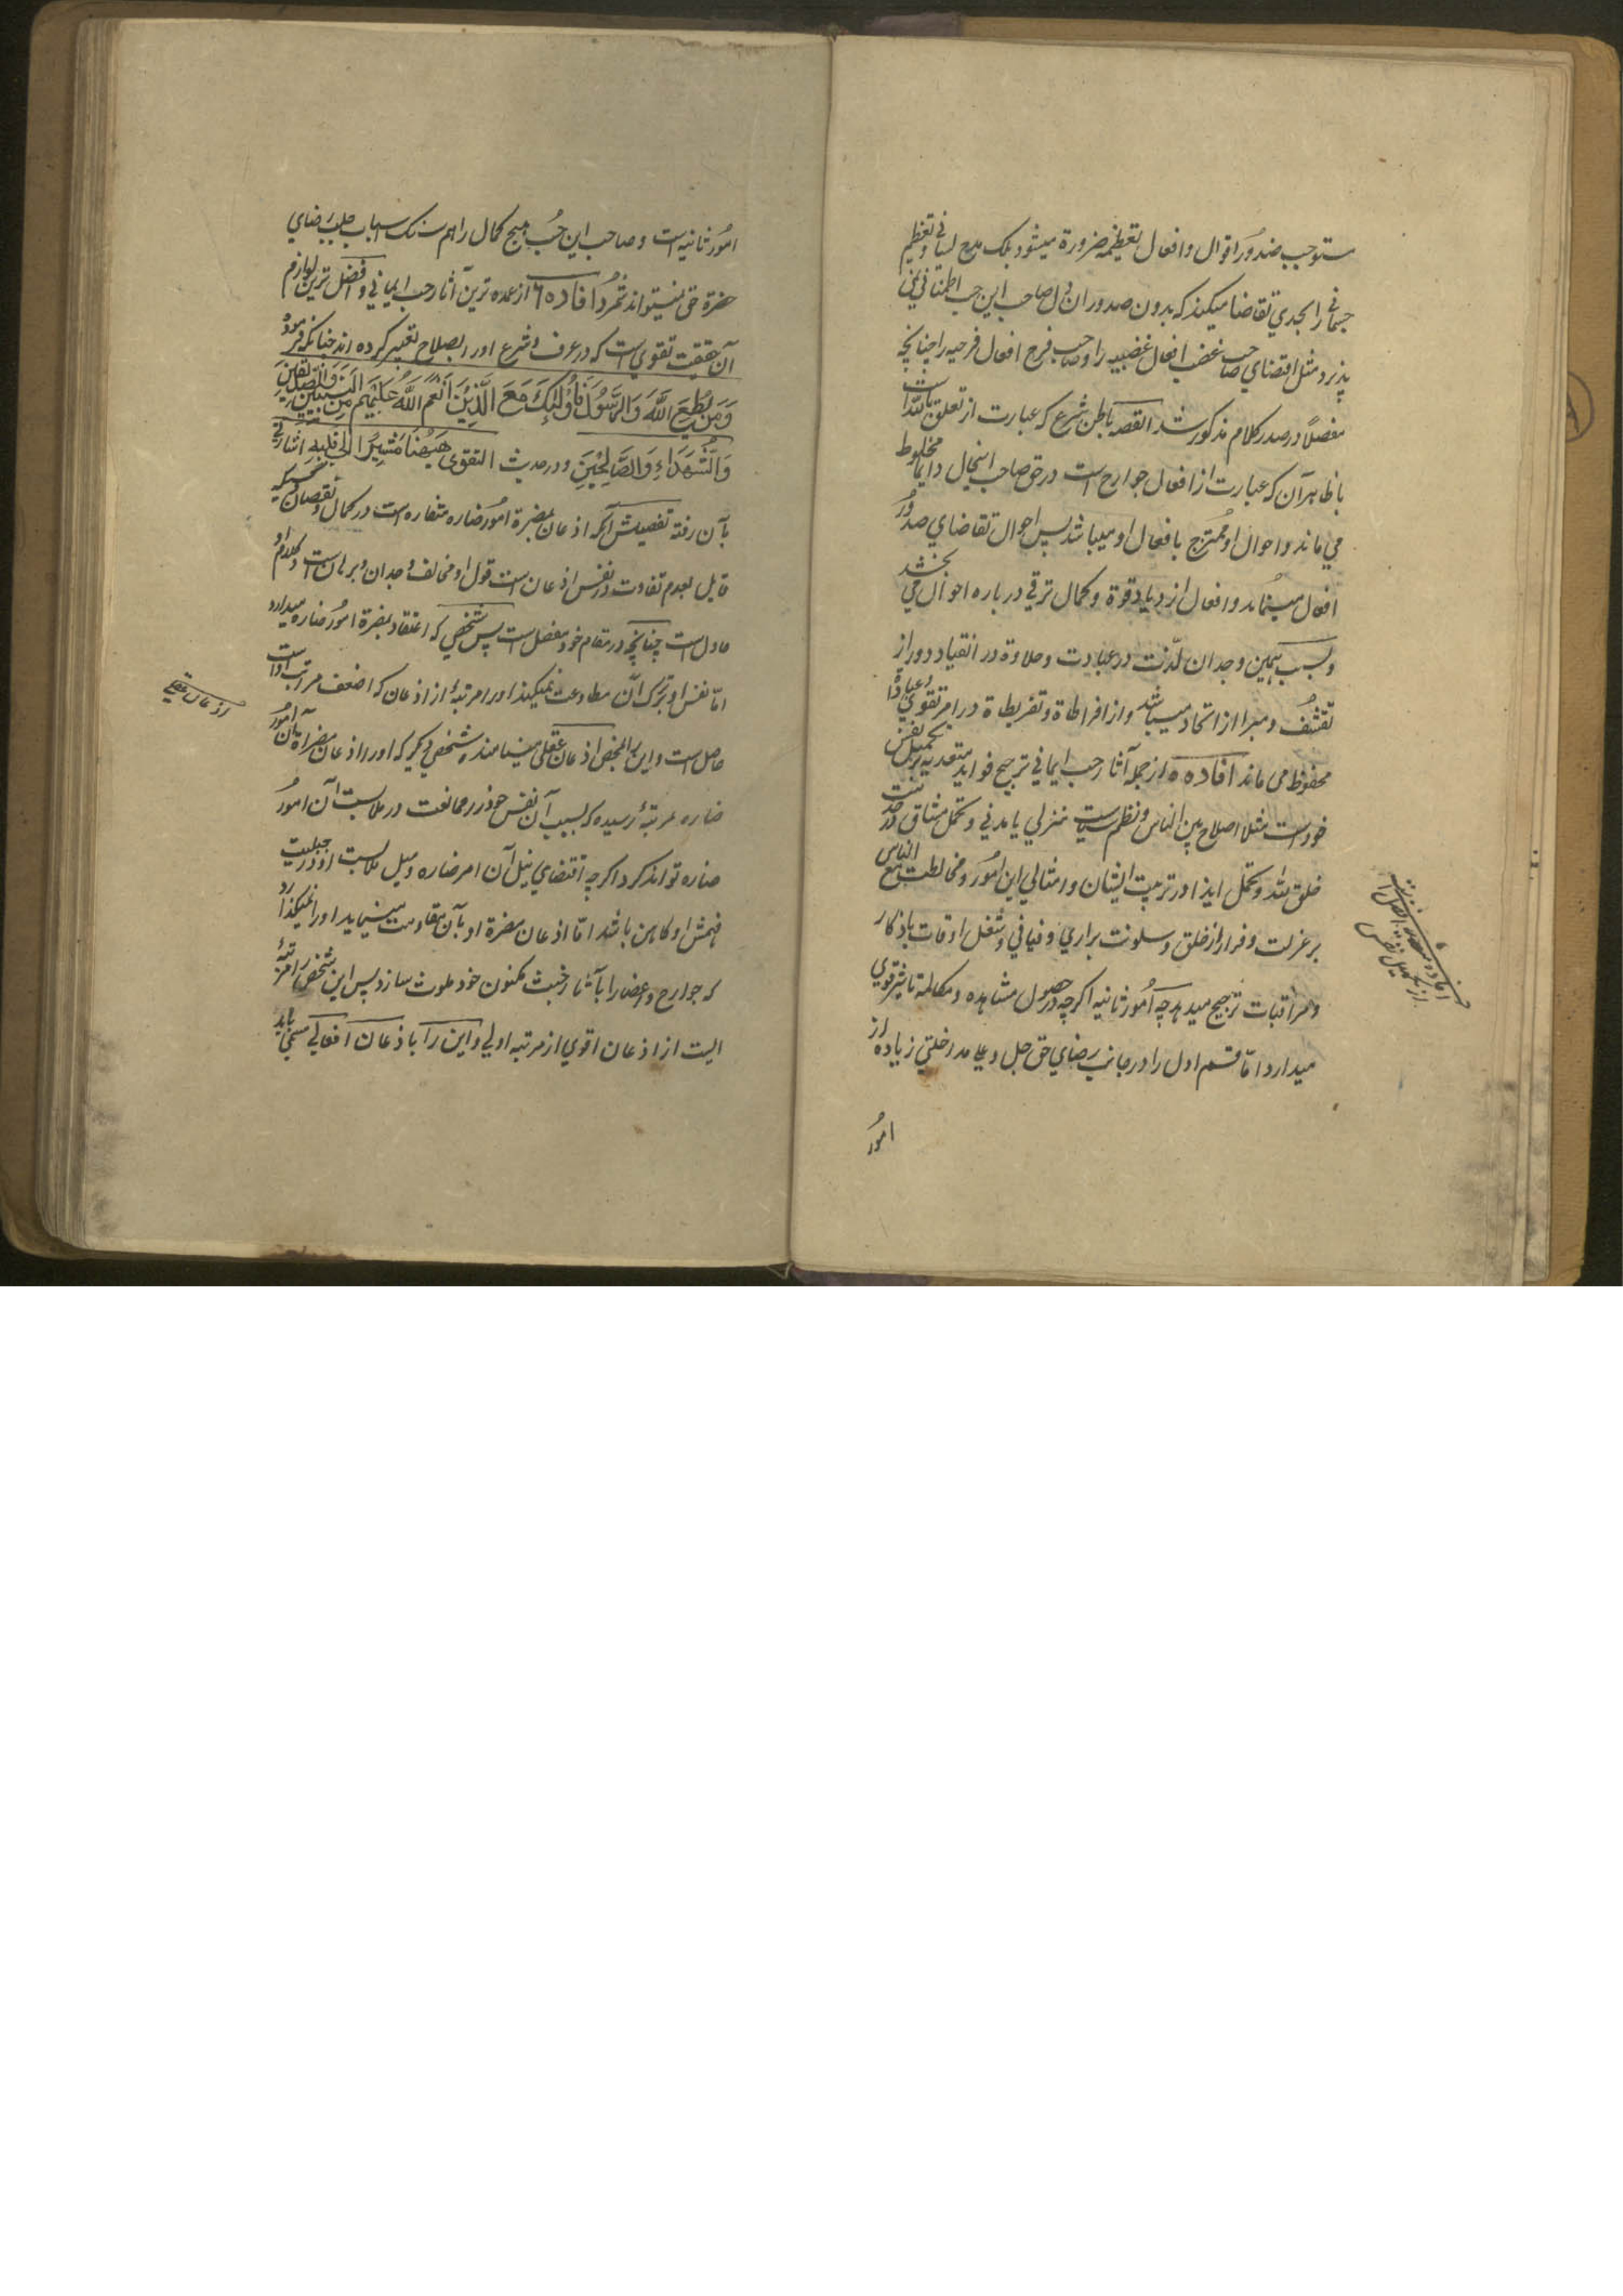 مستوجب صدور اقوال و افعال تعظیمیه ضرورة میشود بلکه مدح لسانی و تعظیم
جسمانی را بحدی تقاضا میکند که بدون صدور آن دل صاحب این حب اطمینانی نمی
پذیرد مثل اقتضای صاحب غضب افعال غضبیه را و صاحب فرح افعال فرحیه را چنانچه
مفصلاً در صدر کلام مذکور شد القصه باطن شرع که عبارت از تعلق بالله است
با ظاهر آن که عبارت از افعال جوارح است در حق صاحب اینحال دایما مخلوط
می ماند و احوال او ممتزج بافعال او میباشد پس احوال تقاضای صدور
افعال مینماید و افعال ازدیاد قوة و کمال ترقی درباره احوال می بخشد
و بسبب همین وجدان لذت در عبادت و حلاوة در انقیاد دور از
تقشف و مبرا از اتحاد میباشد و از افراطاة و تفریطاة در امر تقوی و عبادة
محفوظ می ماند افاده ٥ از جمله آثار حب ایمانی ترجیح فواید متعدیه بر تکمیل نفس
خود است مثلا اصلاح بین الناس و نظم سیاست منزلی یا مدنی و تحمل مشاق در خدمت
خلق الله و تحمل ایذا در تربیت ایشان و امثالی این امور و مخالطت مع الناس
بر عزلت و فرار از خلق و سکونت براری و فیافی و شغل اوقات باذکار
و مراقبات ترجیح میدهد چه امور ثانیه اگرچه در حصول مشاهده و مکالمة تاثیر قوی
میدارد اما قسم اول را در جانب رضای حق جل و علا مدخلتی زیاده از
امور
افاده
از تکمیل نفس
امور ثانیه است و صاحب این حب هیچ کمال را هم سنگ اسباب جلب رضای
حضرة حق نمیتواند شمرد افاده ٦ از عمده ترین آثار حب ایمانی و افضل ترین لوازم
آن حقیقت تقوی است که در عرف شرع او را بصلاح تعبیر کرده اند چنانکه فرموده
وَمَن یُطِعِ اللَّهَ وَالرَّسُولَ فَأُولَٰئِکَ مَعَ الَّذِینَ أَنْعَمَ اللَّهُ عَلَیْهِم مِنَ النَّبِیِّینَ وَالصِّدِّیقِینَ
وَالشُّهَدَاءِ وَالصَّالِحِینَ و در حدیث التقوی هَیهُنا مُشِیرًا اِلی قلبه اشارتی
بآن رفته تفصیلش آنکه اذعان بمضرة امور ضاره متفاوت است در کمال و نقصان کسیکه
قابل بعدم تفاوت در نفس اذعان است قول او مخالف وجدان و برهان است و کلام او
ماول است چنانچه در مقام خود مفصل است پس شخصی که اعتقاد بمضرة امور ضاره میدارد
اما نفس او بترک آن مطاوعت نمیکند او را مرتبهٔ از اذعان که اضعف مراتب اوست
حاصل است و این را محض اذعان عقلی مینامند و شخصی دیگر که او را اذعان مضراة آن امور
ضاره بمرتبهٔ رسیده که بسبب آن نفس خود را ممانعت در ملابست آن امور
ضاره تواند کرد اگرچه اقتضای نیل آن امر ضاره و میل ملابست او در جبلیت
نفسش او کامن باشد اما اذعان مضرة او بآن مقاومت مینماید و او را نمیگذارد
که جوارح و اعضا را بآثار خبث مکنون خود ملوث سازد پس این شخص را مرتبهٔ
الیست از اذعان اقوی از مرتبه اولی و این را باذعان افعالی مسمی باید
اذعان عقلی